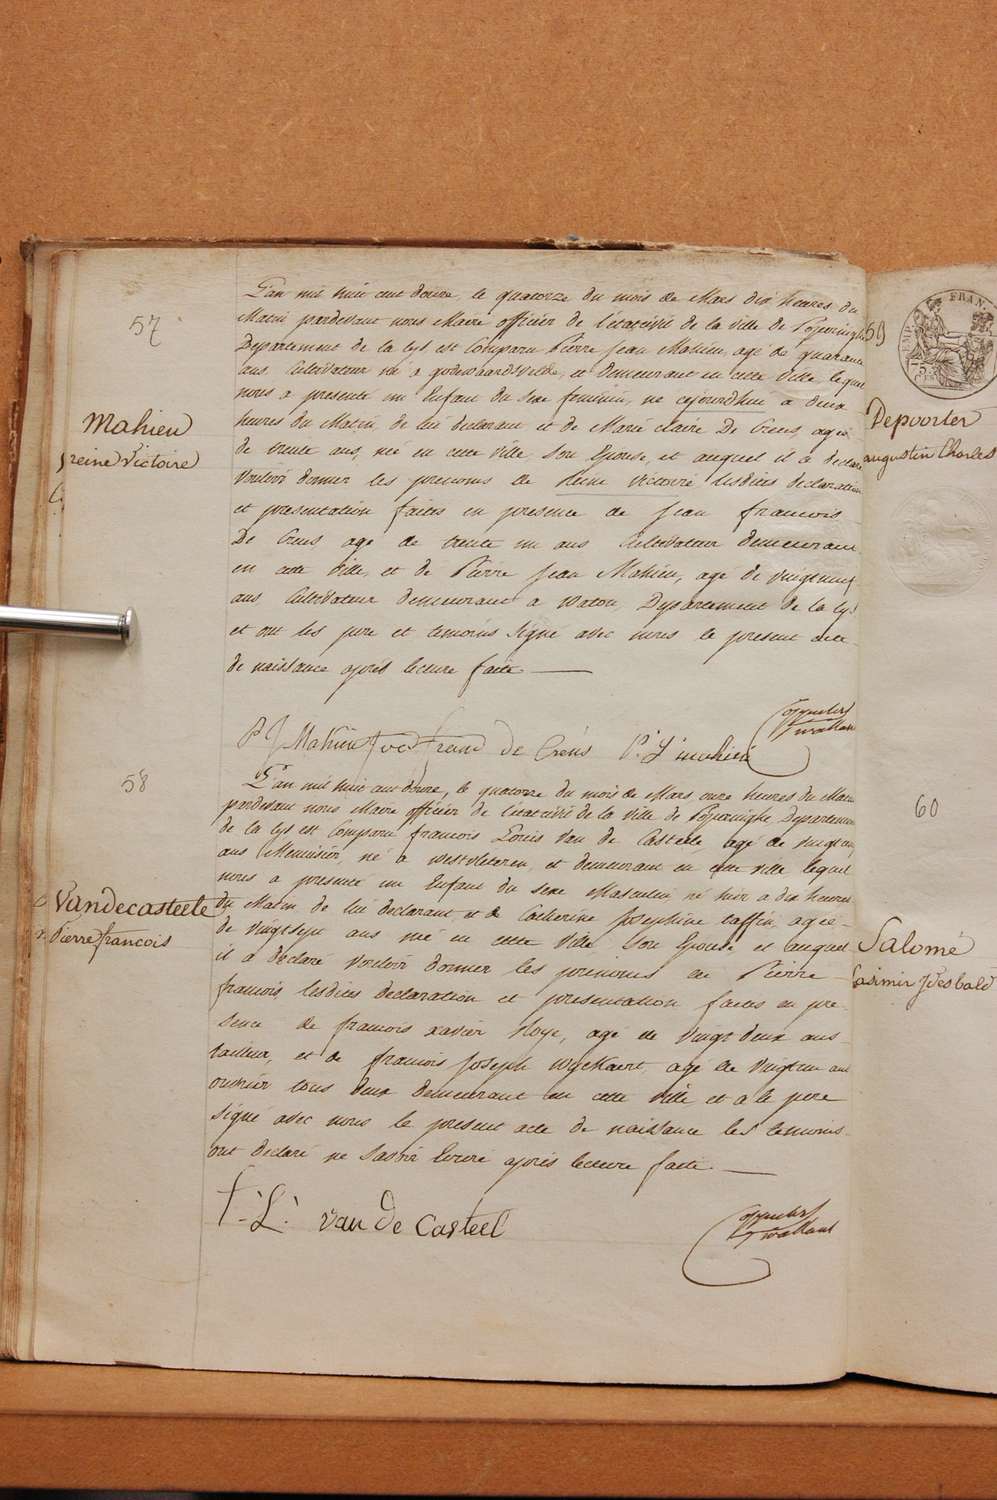 57
Mahieu
reine Victoire
L'an mil huit cent douze, le quatorze du mois de Mars dix heures du
Matin pardevant nous Maire officier de l'état civil de la ville de Poperinghe
Departement de la lys est Comparu Pierre Jean Mahieu, agé de quarante
ans Cultivateur né a godewaersvelde, et demeurant en cette Ville, lequel
nous a presenté un Enfant du sexe feminin, né cejourdhui a deux
heures du Matin, de lui declarant et de Marie Claire De Creus, agée
de trente ans, née en cette Ville son Epouse, et auquel il a declaré
Vouloir donner les prenoms de Reine Victoire lesdites declaration
et presentation faites en presence de Jean francois
De Creus agé de trente un ans Cultivateur demeurant
en cette Ville, et de Pierre Jean Mahieu, agé de vingt neuf
ans Cultivateur demeurant a Watou, Departement de la lys
et ont les pere et temoins signé avec nous le present acte
de naissance après lecture faite
P J Mahieu Joes franc de Crëus P: J: mahieu
58
Vandecasteele
Pierre francois
L'an mil huit cent douze, le quatorze du mois de Mars onze heures du Matin
pardevant nous Maire officier de l'état civil de la Ville de Poperinghe Departement
de la lys est Comparu francois Louis Van de Casteele agé de vingt
ans Menuisier, né a westvleteren, et demeurant en cette ville lequel
nous a presenté un Enfant du sexe Masculin né hier a dix heures
du Matin de lui declarant et de Catherine Josephine taffin, agée
de vingt sept ans née en cette Ville, son Epouse et auquel
il a declaré Vouloir donner les prenoms de Pierre
francois, lesdites declaration et presentation faites en pre
sence de francois xavier Hoye, agé de vingt deux ans
tailleur, et de francois Joseph wyckaert, agé de vingt un ans
ouvrier tous deux demeurant en cette Ville et a le pere
signé avec nous le present acte de naissance les temoins
ont declaré ne savoir Ecrire après lecture faite
f: L: van de Casteel
59
Depoorter
augustin Charles
EMP FRAN
75
60
Salomé
Casimir Idesbald